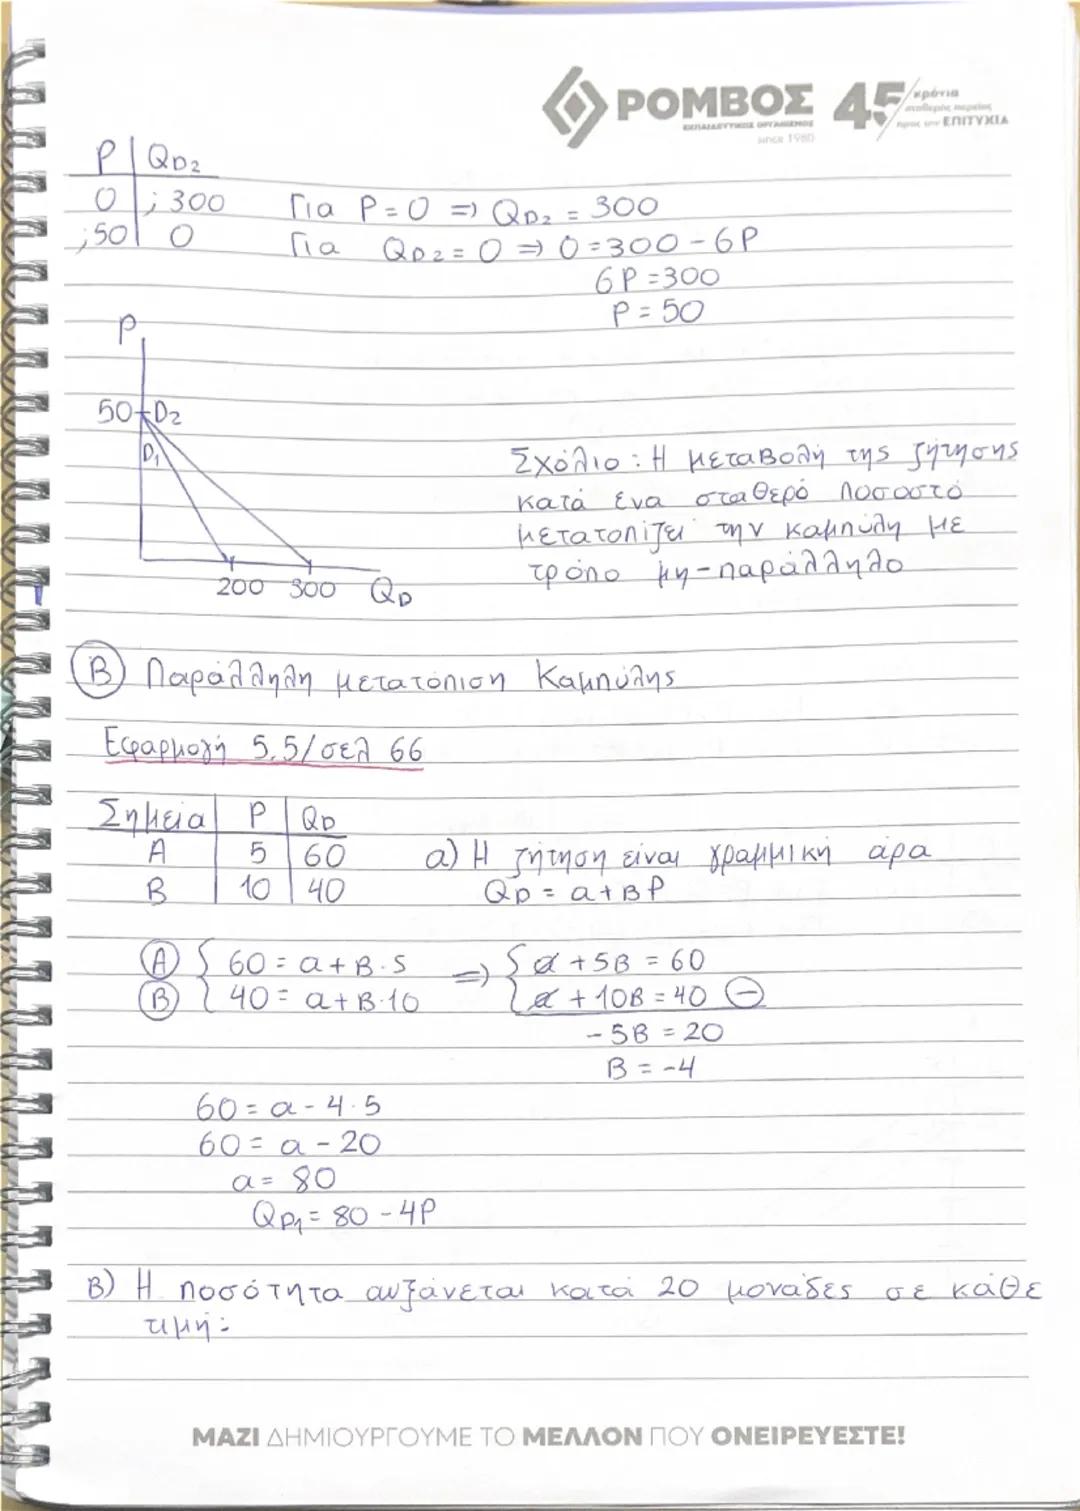 ΡΟΜΒΟΣ 45 χρόνια
ΕΚΠΑΙΔΕΥΤΙΚΟΣ ΟΡΓΑΝΙΣΜΟΣ σταθερής πορείας
since 1980 προς την ΕΠΙΤΥΧΙΑ
P | QD2
0 | ; 300 Για P = 0 => QD2 = 300
;50 | 0 Για QD2 = 0 => 0 = 300 - 6P
6P = 300
P = 50
P
50 D2
D1
Σχόλιο : Η μεταβολή της ζήτησης
κατά ένα σταθερό ποσοστό
μετατοπίζει την καμπύλη με
τρόπο μη-παράλληλο
200 300 QD
Β) Παράλληλη μετατόπιση Καμπύλης
Εφαρμογή 5.5/σελ 66
Σημεία | P | QD
A | 5 | 60 α) Η ζήτηση είναι γραμμική άρα
B | 10 | 40 QD = α + βP
Α { 60 = α + β·5 => { α + 5β = 60
Β { 40 = α + β·10 { α + 10β = 40 (-)
- 5β = 20
β = -4
60 = α - 4·5
60 = α - 20
α = 80
QD1 = 80 - 4P
β) Η ποσότητα αυξάνεται κατά 20 μονάδες σε κάθε
τιμή:
ΜΑΖΙ ΔΗΜΙΟΥΡΓΟΥΜΕ ΤΟ ΜΕΛΛΟΝ ΠΟΥ ΟΝΕΙΡΕΥΕΣΤΕ!